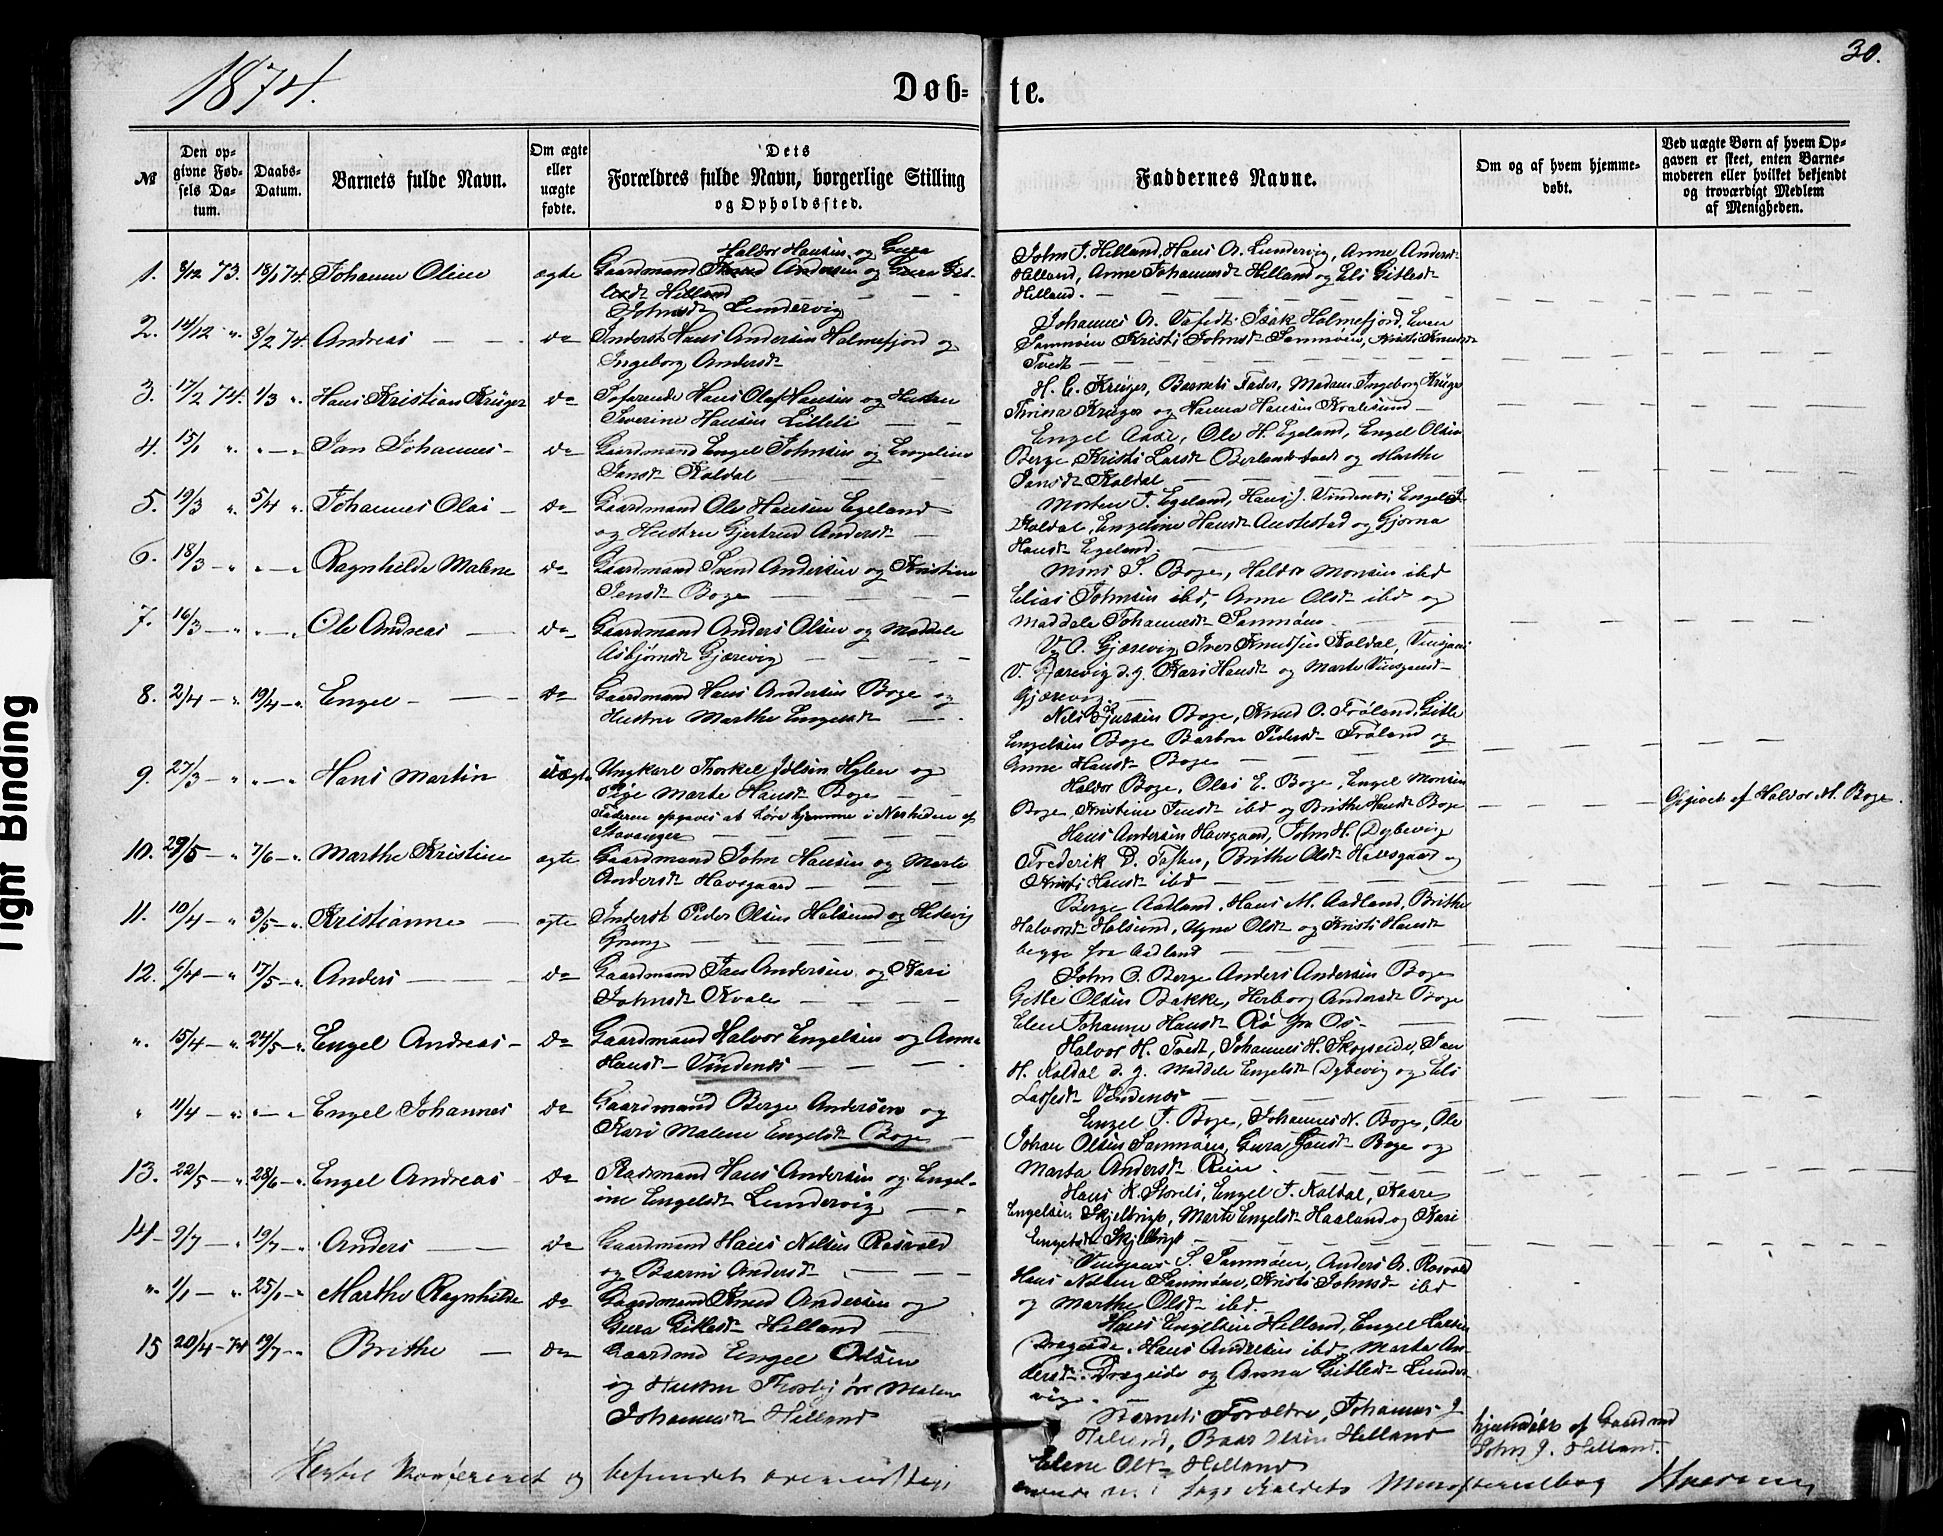 1874.
Døb-te.
30.
№
Den opgivne Fødsels Datum.
Daabs-Datum.
Barnets fulde Navn.
Om ægte eller uægte fødte.
Dets Forældres fulde Navn, borgerlige Stilling og Opholdssted.
Faddernes Navne.
Om og af hvem hjemmedøbt.
Ved uægte Børn af hvem Opgaven er skeet, enten Barnemoderen eller hvilket bekjendt og troværdigt Medlem af Menigheden.
1. 8/12 73. 18/1 74. Johanne Oline ægte
Haldor Hansen og Gura
Gaardmand Knud Andersen og Gura Gitlesdt Helland
Johnsdt Lundervig
John J. Helland, Hans A. Lundervig, Anne Andersdt
Helland, Anne Johannesdt Helland og Eli Gitlesdt
Helland.
2. 14/12 " 8/2 74. Andreas do
Inderst Hans Andersen Holmefjord og
Ingeborg Andersdt
Johannes A. Isak Holmefjord, Even
Samnøen Kristi Johnsdt Samnøen, Kristi Knudsdt
Tvedt
3. 17/2 74. 1/3 ". Hans Kristian Krüger do
Søfarende Hans Olaf Hansen og Hustru
Severine Hansen Lilleli
H. C. Krüger, Barnets Fader, Madam Ingeborg Krüger
Krüger og Hanna Hansen Kvalesund
4. 15/1 ". "-" Jan Johannes do
Gaardmand Engel Johnsen og Engeline
Jansdt Koldal
Engel Aase, Ole H. Egeland, Engel Olsen
Berge, Kristi Larsdt og Marthe
Jansdt Koldal
5. 19/3 ". 5/4 ". Johannes Olai do
Gaardmand Ole Hansen Egeland
og Hustru Gjertrud Andersdt
Morten J. Egeland, Hans J. Vindenes, Engel J.
Koldal, Engeline Hansdt Austestad og Gjorna
Hansdt Egeland.
6. 18/3 - " "-" Ragnhilde Malene do
Gaardmand Svend Andersen og Kristine
Jensdt Boge
Mons S. Boge, Haldor Monsen ibd
Elias Johnsen ibd, Anne Olsdt ibd og
Maddele Johannesdt Samnøen.
7. 16/3 - " "-" Ole Andreas do
Gaardmand Anders Olsen og Maddele
Asbjørnsdt Gjærevig
V. O. Gjærevig Iver Knudsen Koldal,
V. Gjærevig d.y. Kari Hansdt og Marte
Gjærevig
8. 2/4 - " 19/4 -". Engel do
Gaardmand Hans Andersen Boge og
Hustru Marthe Engelsdt
Nils Sjursen Boge, Knud O. Frøland, Gitle
Engelsen Boge Barbro Pedersdt Frøland og
Anne Hansdt Boge
9. 27/3 - " "-" Hans Martin Uægte
Ungkarl Thorkel Hylen og
Pige Marte Hansdt Boge
Faderen opgaves at høre hjemme i Nærheden af
Stavanger
Haldor Boge, Olai E. Boge, Engel Monsen
Boge, Kristine Jensdt ibd og Brithe Hansdt Boge
Opgivet af Haldor M. Boge.
10. 29/5 - " 7/6 -". Marthe Kristine ægte
Gaardmand John Hansen og Marte
Andersdt Havsgaard
Hans Andersen Havsgaard, John H. Dybevig
Frederik D. Brithe Olsdt Havsgaard og
Kristi Hansdt ibd
11. 10/4 - " 3/5 -". Kristianne ægte
Inderst Peder Olsen Halsund og Hedevig
Grung
Berge Aadland, Hans M. Aadland, Brithe
Halvorsdt Halsund, Olsdt og Kristi Hansdt
begge fra Aadland
12. 6/4 - " 17/5 -". Anders do
Gaardmand Jan Andersen og Kari
Johnsdt Kvale
John O. Berge Anders Andersen Boge
Gitle Olsen Bakke, Herborg Andersdt Boge
Elen Johanne Hansdt Rø fra Os
". 15/4 - ". 24/5 -". Engel Andreas do
Gaardmand Halvor Engelsen og Anna
Hansdt Vindenes
Halvor H. Tvedt, Johannes H. Skogseide, Jan
H. Koldal d.y. Maddele Engelsdt Dybevig og Eli
Vindenes
" 11/4 - ". "-" Engel Johannes do
Gaardmand Berge Andersen og
Kari Malene Engelsdt Boge
Engel J. Boge, Johannes N. Boge, Ole
Johan Olsen Samnøen, Gura Jansdt Boge og
Marta Andersdt Reim.
13. 22/5 - ". 28/6 -". Engel Andreas do
Pladsmand Hans Andersen og Engeline
Engelsdt Lundervig
Hans K. Storeli, Engel J. Koldal, Kaare
Engelsen Skjelbreid, Marte Engelsdt Haaland og Kari
Engelsdt
14. 9/7 - " 19/7 -". Anders do
Gaardmand Hans Nilsen Røsvold
og Baarni Andersdt
S. Samnøen, Anders A. Røsvold
Hans Nilsen Samnøen, Kristi Johnsdt ibd
og Marthe Olsdt ibd.
". 1/1 - " 25/1 -" Marthe Ragnhilde do
Gaardmand Knud Andersen og
Gura Gitlesdt Helland
Hans Engelsen Helland, Engel Larsen
Drageide, Hans Andersen ibd Marta Andersdt
Drageide og Anna Gitlesdt Lundervig.
15 20/4 - 74 19/7 -". Brithe do
Gaardmd Engel Olsen
og Hustru Malene
Johannesdt Helland
Barnets Forældre, Johannes J.
Helland, Baar Olsen Helland
Elene Olsdt Helland
hjemdøbt af Gaardmd
John J. Helland.
Hertil konfereret og befundet overensstem-
mende m. Ministerialbog
Tight Binding